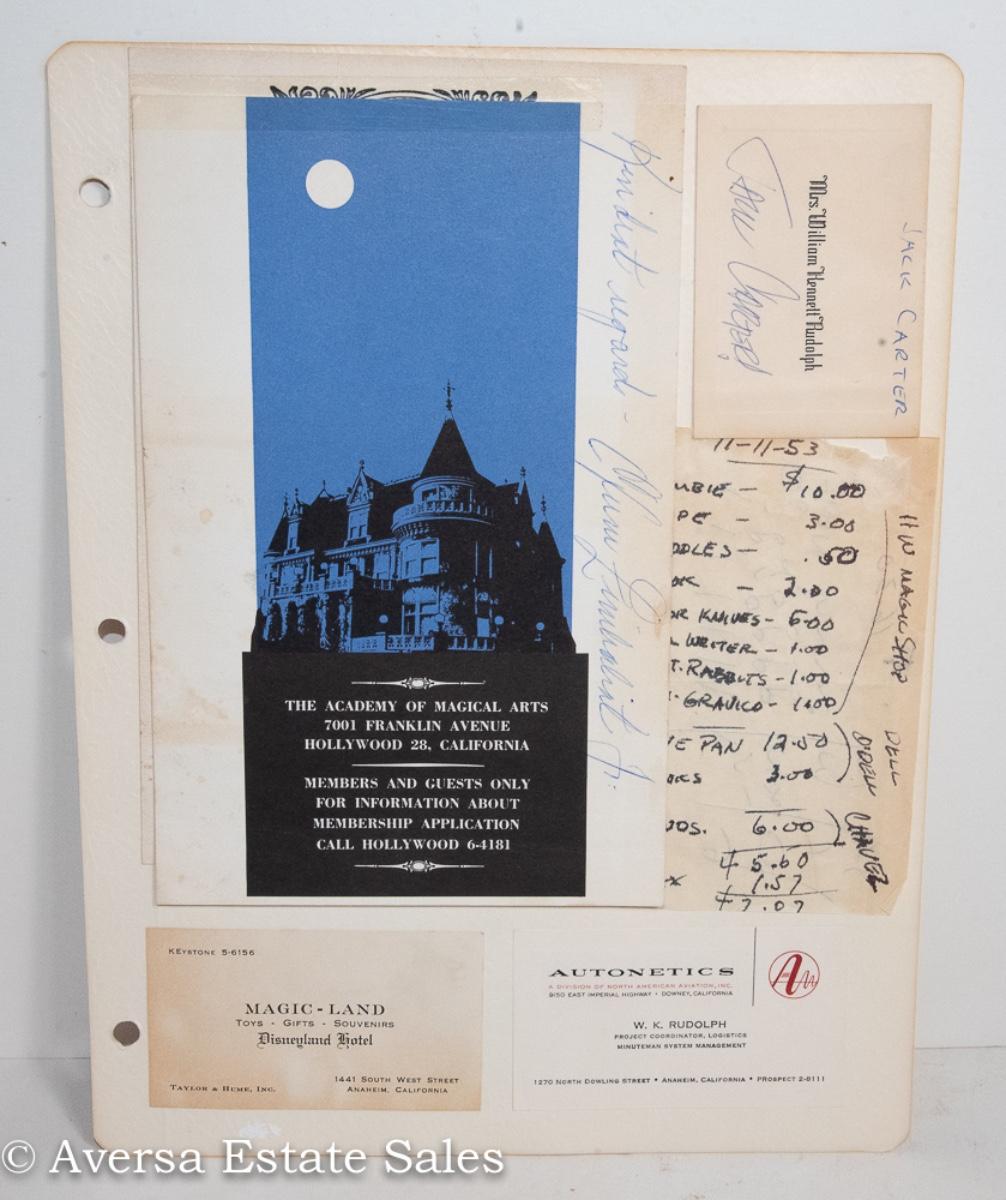 THE ACADEMY OF MAGICAL ARTS
7001 FRANKLIN AVENUE
HOLLYWOOD 28, CALIFORNIA
MEMBERS AND GUESTS ONLY
FOR INFORMATION ABOUT
MEMBERSHIP APPLICATION
CALL HOLLYWOOD 6-4181
Kindest regards -
Jr.
JACK CARTER
Mrs. William Kennett Rudolph
Jack Carter
11-11-53
UBIE - $10.00
PE - 3.00
DDLES - .50
OK - 2.00
OR KNIVES - 5.00
L WRITER - 1.00
T. RABBITS - 1.00
GRAVICO - 1.00
IE PAN 12.50
OKS 3.00
OS. 6.00
45.60
X 1.57
47.07
HW MAGIC SHOP
DELL
O'DELL
CHAVEZ
KEYSTONE 5-6156
MAGIC-LAND
TOYS - GIFTS - SOUVENIRS
Disneyland Hotel
TAYLOR & HUME, INC.
1441 SOUTH WEST STREET
ANAHEIM, CALIFORNIA
AUTONETICS
A DIVISION OF NORTH AMERICAN AVIATION, INC.
9150 EAST IMPERIAL HIGHWAY • DOWNEY, CALIFORNIA
W. K. RUDOLPH
PROJECT COORDINATOR, LOGISTICS
MINUTEMAN SYSTEM MANAGEMENT
1270 NORTH DOWLING STREET • ANAHEIM, CALIFORNIA • PROSPECT 2-8111
© Aversa Estate Sales